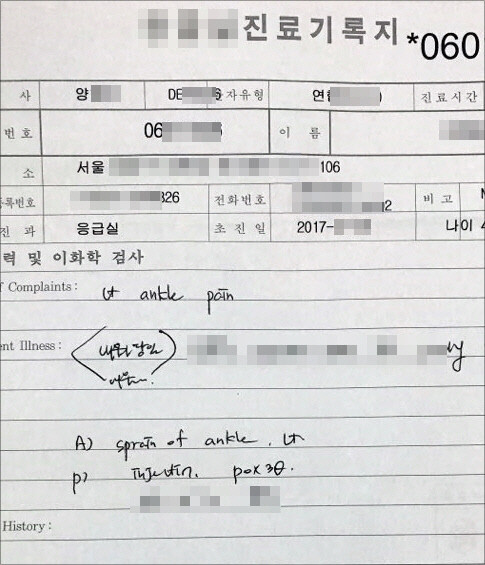 진료기록지 *060
사 양 DE 자유형 연합 ) 진료시간
번호 06 이 름
소 서울 106
등록번호 326 전화번호 2 비고
진 과 응급실 초진일 2017- 나이 4
력 및 이화학 검사
f Complaints: Lt ankle pain
ent Illness: 내원 당일
A) sprain of ankle, Lt
p) injection. po x 3θ.
History: